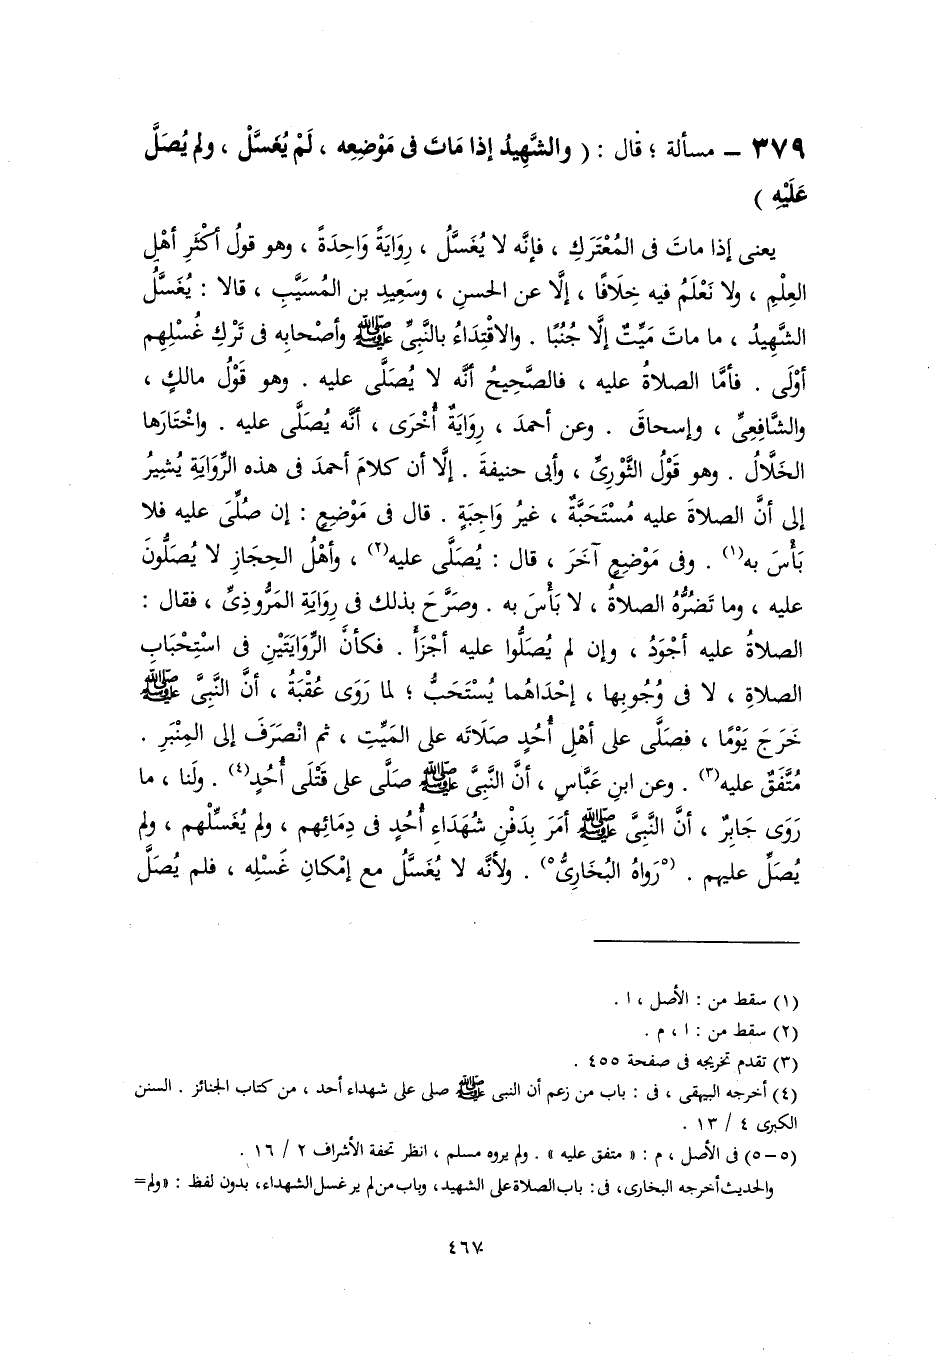 ٣٧٩ – مسألة ؛ قال : ( والشَّهِيدُ إذا مَاتَ فى مَوْضِعِه ، لَمْ يُغَسَّلْ ، ولم يُصَلَّ
عَلَيْهِ )
يعنى إذا ماتَ فى المُعْتَرَكِ ، فإنَّه لا يُغَسَّلُ ، رِوَايَةً وَاحِدَةً ، وهو قولُ أكْثَرِ أهْلِ
العِلْمِ ، ولا نَعْلَمُ فيه خِلَافًا ، إلَّا عن الحسنِ ، وسَعِيدِ بن المُسَيَّبِ ، قالا : يُغَسَّلُ
الشَّهِيدُ ، ما ماتَ مَيِّتٌ إلَّا جُنُبًا . والاقْتِدَاءُ بالنَّبِىِّ ﷺ وأصْحابِه فى تَرْكِ غُسْلِهم
أوْلَى . فأمَّا الصلاةُ عليه ، فالصَّحِيحُ أنَّه لا يُصَلَّى عليه . وهو قَوْلُ مالكٍ ،
والشَّافِعِىِّ ، وإسحاقَ . وعن أحمدَ ، رِوَايَةٌ أُخْرَى ، أنَّه يُصَلَّى عليه . واخْتَارَها
الخَلَّالُ . وهو قَوْلُ الثَّوْرِىِّ ، وأبى حنيفةَ . إلَّا أن كلامَ أحمدَ فى هذه الرِّوَايَةِ يُشِيرُ
إلى أنَّ الصلاةَ عليه مُسْتَحَبَّةٌ ، غيرُ وَاجِبَةٍ . قال فى مَوْضِعٍ : إن صُلِّىَ عليه فلا
بَأْسَ به(١) . وفى مَوْضِعٍ آخَرَ ، قال : يُصَلَّى عليه(٢) ، وأهْلُ الحِجَازِ لا يُصَلُّونَ
عليه ، وما تَضُرُّه الصلاةُ ، لا بَأْسَ به . وصَرَّحَ بذلك فى رِوَايَةِ المَرُّوذِىِّ ، فقال :
الصلاةُ عليه أجْوَدُ ، وإن لم يُصَلُّوا عليه أجْزَأَ . فكأنَّ الرِّوَايَتَيْنِ فى اسْتِحْبَابِ
الصلاةِ ، لا فى وُجُوبِها ، إحْدَاهُما يُسْتَحَبُّ ؛ لما رَوَى عُقْبَةُ ، أنَّ النَّبِىَّ ﷺ
خَرَجَ يَوْمًا ، فصَلَّى على أهْلِ أُحُدٍ صلَاتَه على المَيِّتِ ، ثم انْصَرَفَ إلى المِنْبَرِ .
مُتَّفَقٌ عليه(٣) . وعن ابنِ عَبَّاسٍ ، أنَّ النَّبِىَّ ﷺ صلَّى على قَتْلَى أُحُدٍ(٤) . ولَنا ، ما
رَوَى جَابِرٌ ، أنَّ النَّبِىَّ ﷺ أمَرَ بِدَفْنِ شُهَدَاءِ أُحُدٍ فى دِمَائِهم ، ولم يُغَسِّلْهم ، ولم
يُصَلِّ عليهم . (٥رَواهُ البُخَارِىُّ٥) . ولأنَّه لا يُغَسَّلُ مع إمْكانِ غَسْلِه ، فلم يُصَلَّ
(١) سقط من : الأصل ، ا .
(٢) سقط من : ا ، م .
(٣) تقدم تخريجه فى صفحة ٤٥٥ .
(٤) أخرجه البيهقى ، فى : باب من زعم أن النبى ﷺ صلى على شهداء أحد ، من كتاب الجنائز . السنن
الكبرى ٤ / ١٣ .
(٥ – ٥) فى الأصل ، م : « متفق عليه » . ولم يروه مسلم ، انظر تحفة الأشراف ٢ / ١٦ .
والحديث أخرجه البخارى، فى: باب الصلاة على الشهيد، وباب من لم ير غسل الشهداء، بدون لفظ : «ولم =
٤٦٧